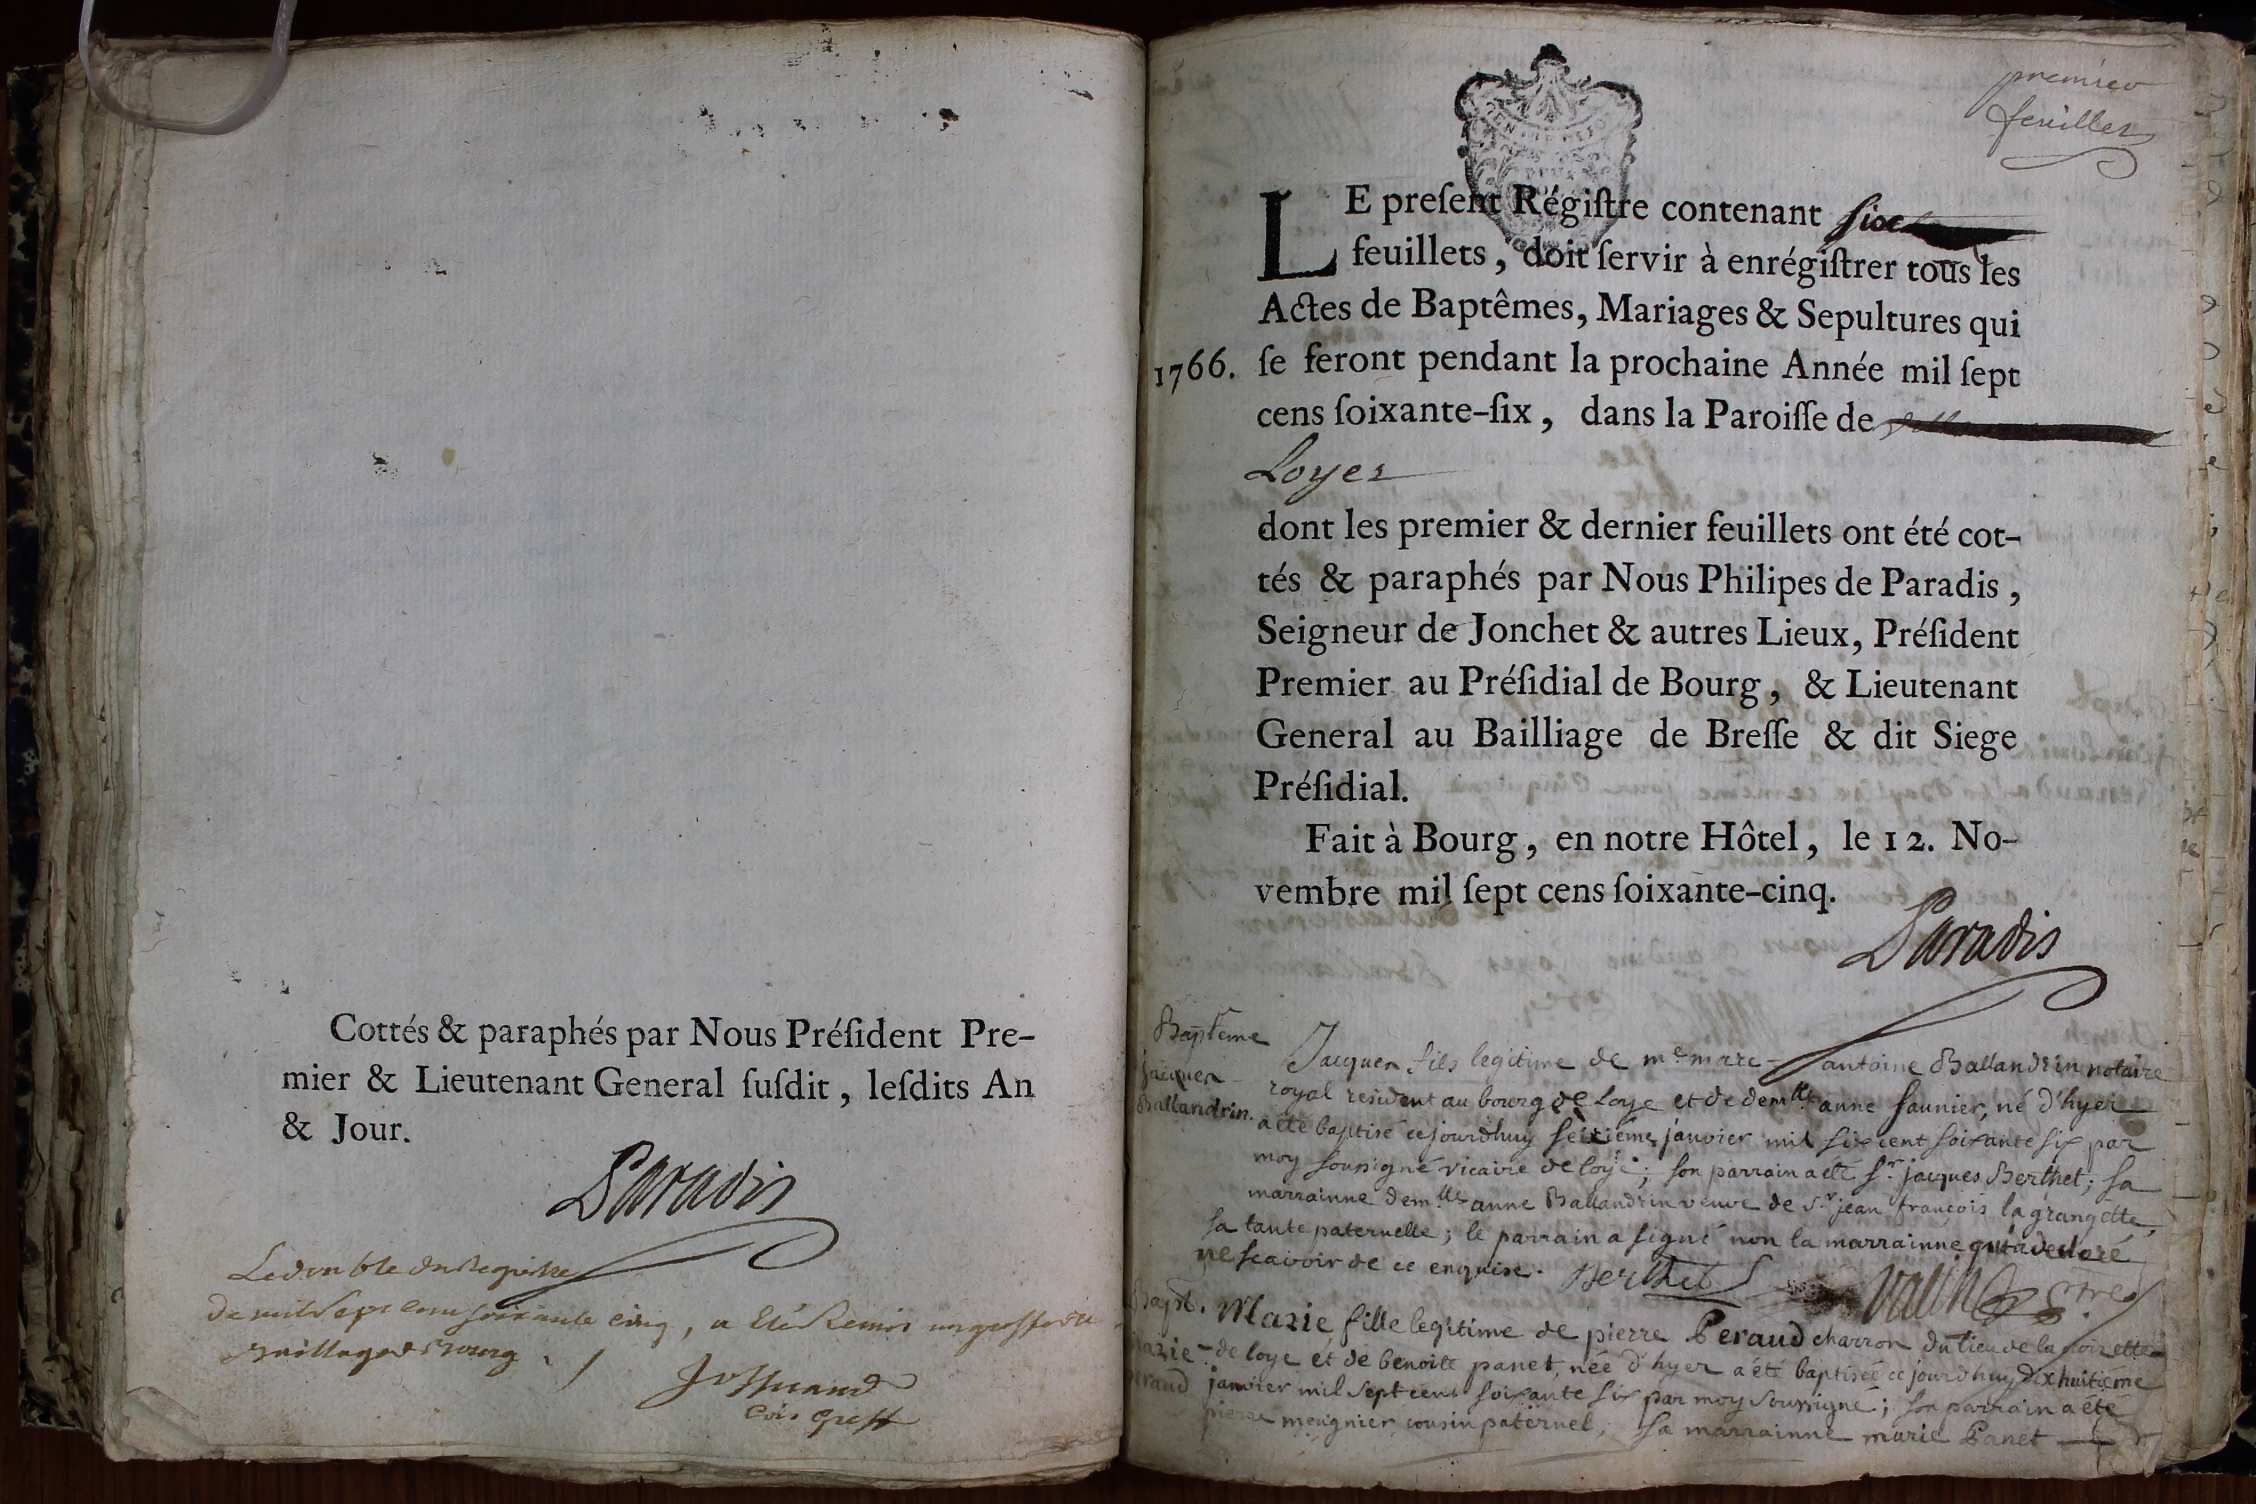 Cottés & paraphés par Nous Préſident Pre-
mier & Lieutenant General ſuſdit, leſdits An
& Jour.
Paradis
Le double du Registre
de mil sept cens soixante cinq, a été Remis au greffe du
Bailliage de Bourg
Com Greff
premier
feuillet
LE preſent Régiſtre contenant six
feuillets, doit ſervir à enrégiſtrer tous les
Actes de Baptêmes, Mariages & Sepultures qui
1766. ſe feront pendant la prochaine Année mil ſept
cens ſoixante-ſix, dans la Paroiſſe de
Loyes
dont les premier & dernier feuillets ont été cot-
tés & paraphés par Nous Philipes de Paradis,
Seigneur de Jonchet & autres Lieux, Préſident
Premier au Préſidial de Bourg, & Lieutenant
General au Bailliage de Breſſe & dit Siege
Préſidial.
Fait à Bourg, en notre Hôtel, le 12. No-
vembre mil ſept cens ſoixante-cinq.
Paradis
Bapteme
jacques
Ballandrin.
Jacques fils legitime de me marc antoine Ballandrin notaire
royal resident au bourg de Loye et de demlle anne saunier, né d'hyer
a été baptisé ce jourdhuy seizième janvier mil six cent soixante six par
moy soussigné vicaire de loye; son parrain a été sr. jacques Berthet; sa
marrainne demlle anne Ballandrin veuve de sr jean françois lagrangette,
sa tante paternelle; le parrain a signé non la marrainne qui a declaré
ne scavoir de ce enquise. Berthet
Bapt.
Marie
Peraud
Marie fille legitime de pierre Peraud charron du lieu de la
de loye et de benoite panet, née d'hyer a été baptisée ce jourdhuy dix huitième
janvier mil sept cent soixante six par moy soussigné; son parrain a été
pierre meugnier cousin paternel, sa marrainne marie Panet